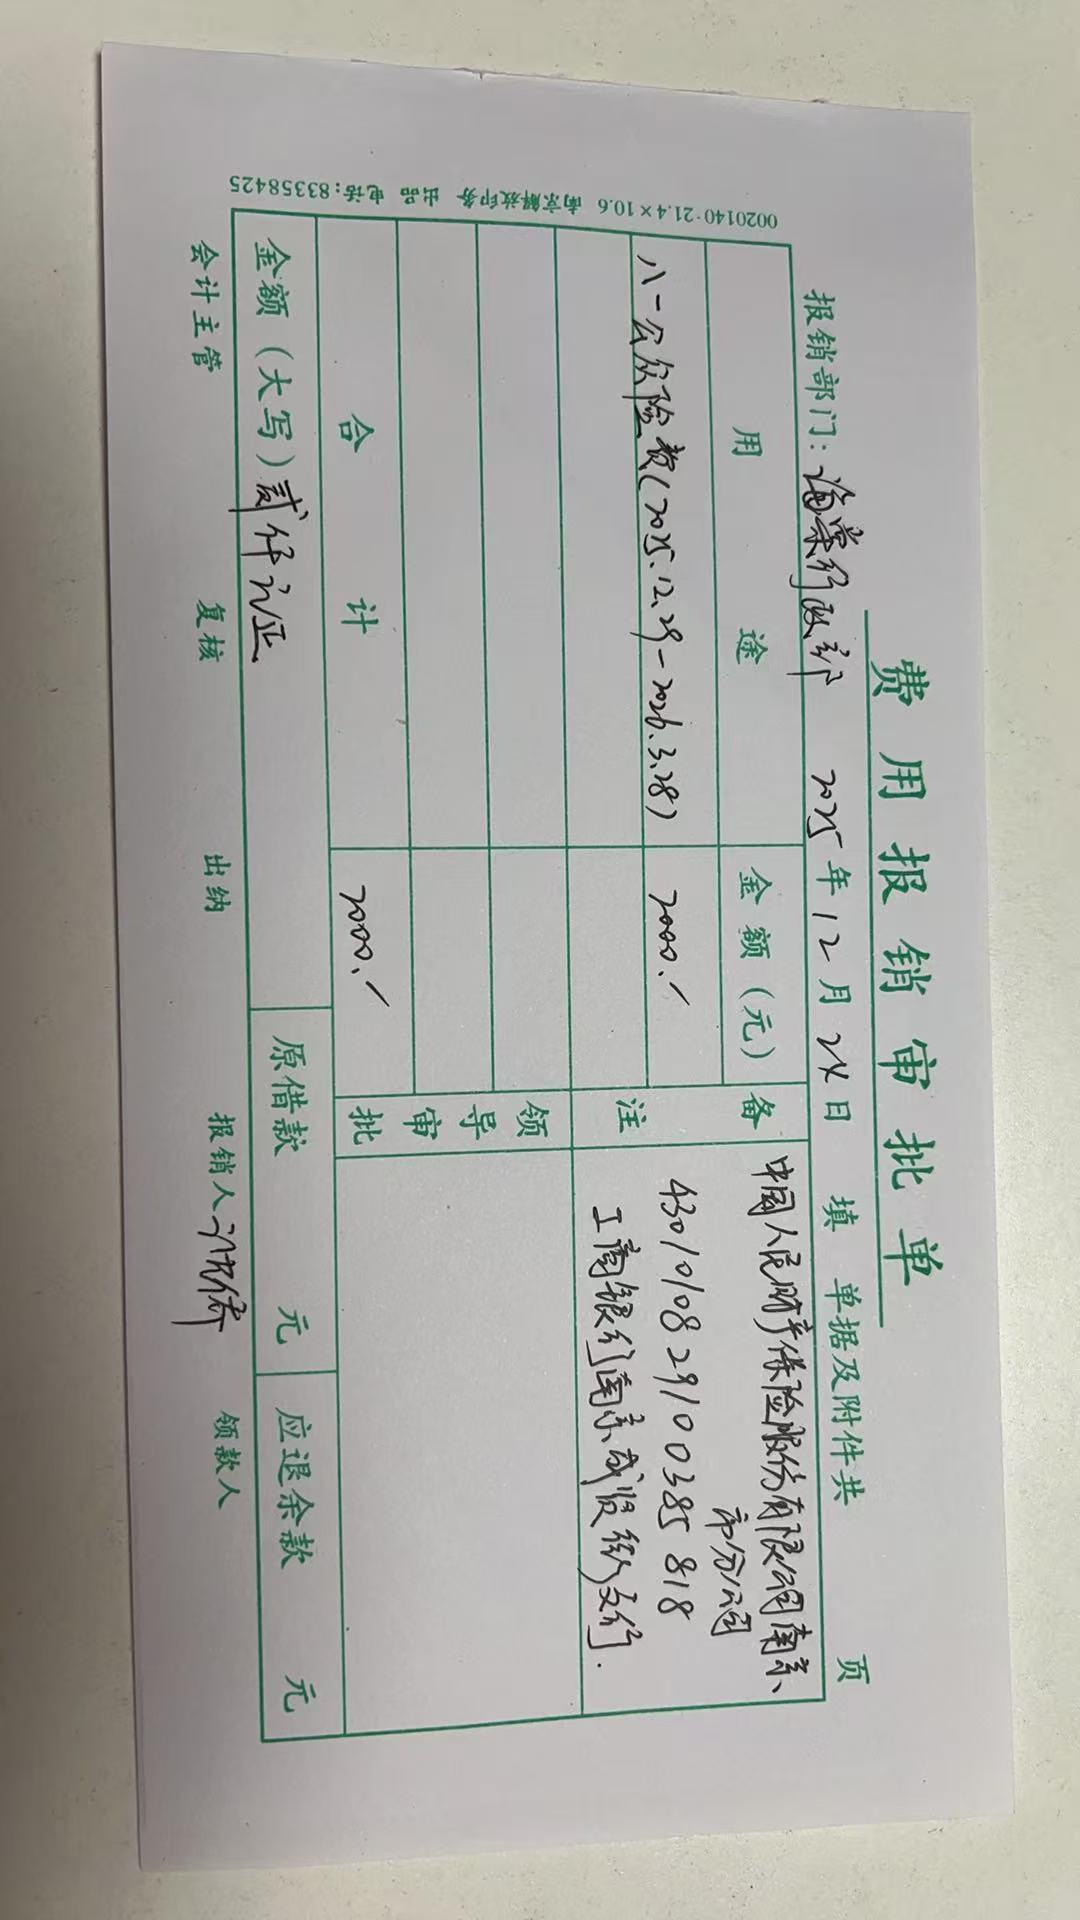 费用报销审批单
报销部门：海棠行政部 2025年12月24日 填 单据及附件共 页
用途 金额（元） 备注
八一公众险费（2025.12.29－2026.3.28） 2000.✓
中国人民财产保险股份有限公司南京
市分公司
4301010829100385818
工商银行南京城北支行.
领导审批
合计 2000.✓
金额（大写）贰仟元正 原借款 元 应退余款 元
会计主管 复核 出纳 报销人 领款人
0020140·21.4×10.6 南京解放印务 出品 电话：83358425